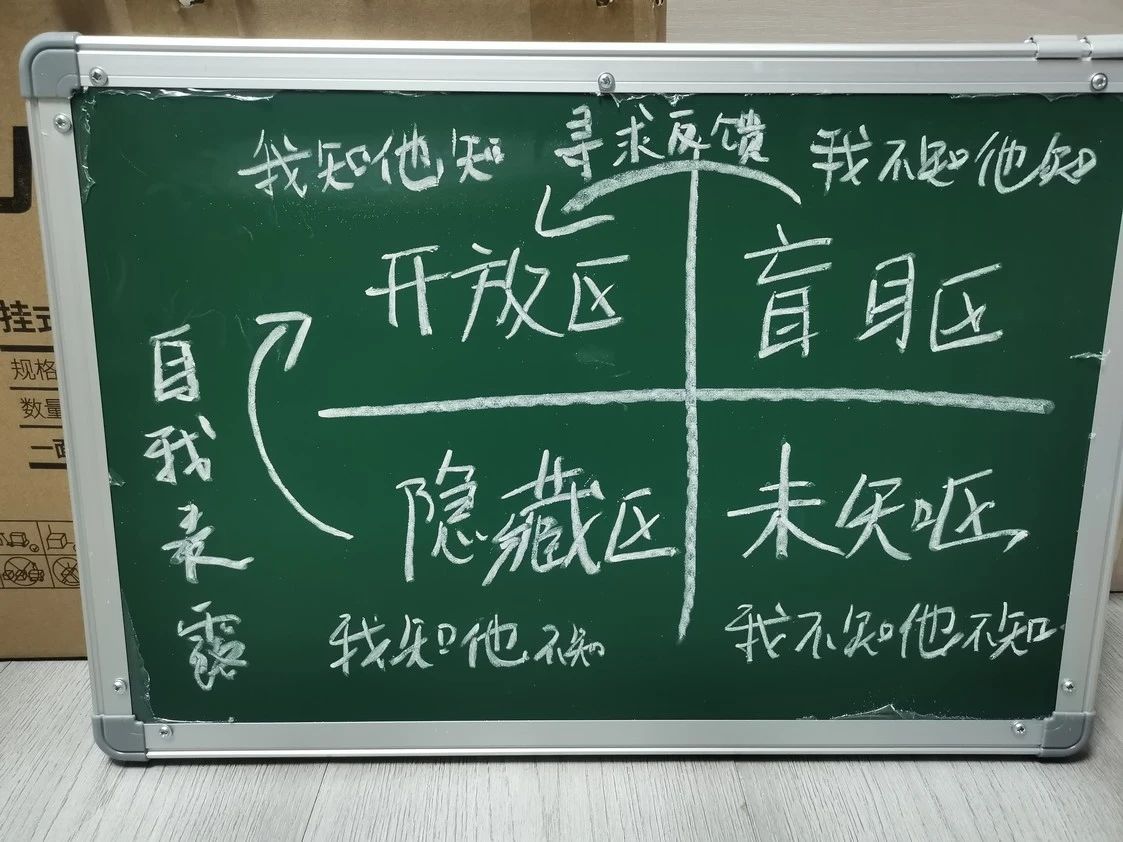 寻求反馈
我知他知
我不知他知
开放区
盲目区
自我表露
隐藏区
未知区
我知他不知
我不知他不知
挂式
规格
数量